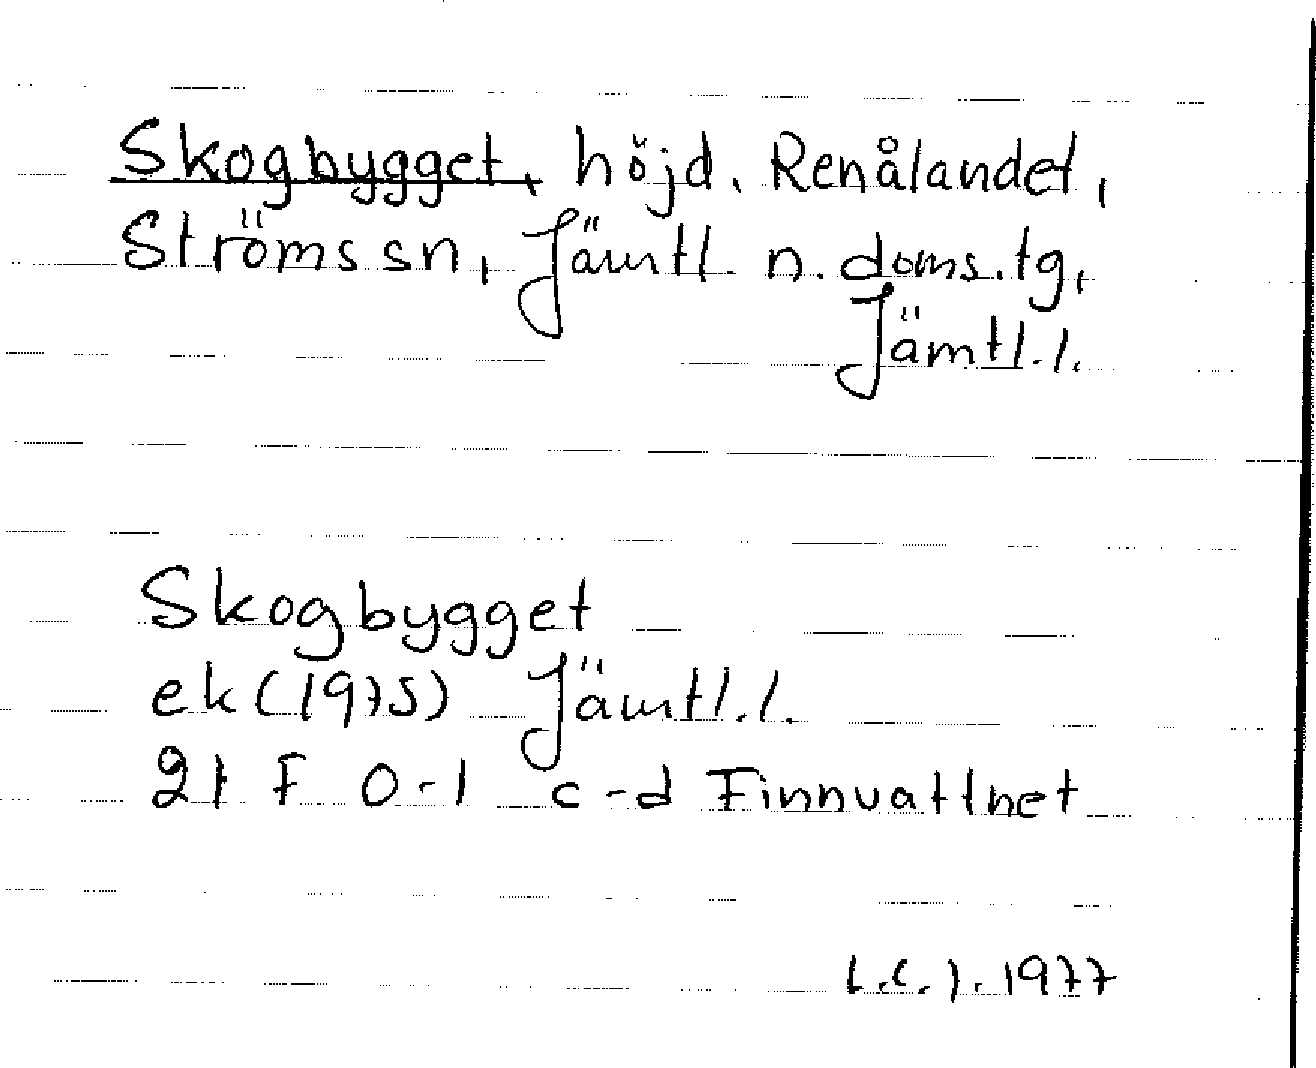 Skogbygget, höjd, Renålandet,
Ströms sn, Jämtl. n. doms. tg,
Jämtl. l.
Skogbygget
ek (1975) Jämtl. l.
21 F 0-1 c-d Finnvattnet
1977